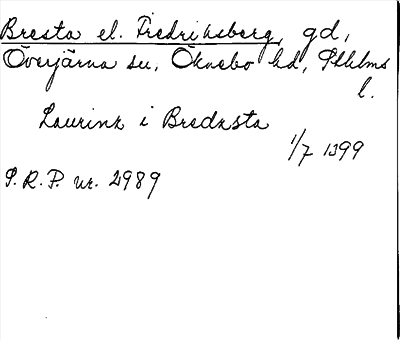 Bresta el. Fredriksberg, gd,
Överjärna sn, Öknebo hd, Sthlms
l.
Laurinz i Bredasta
1/7 1399
S.R.P. nr. 2989